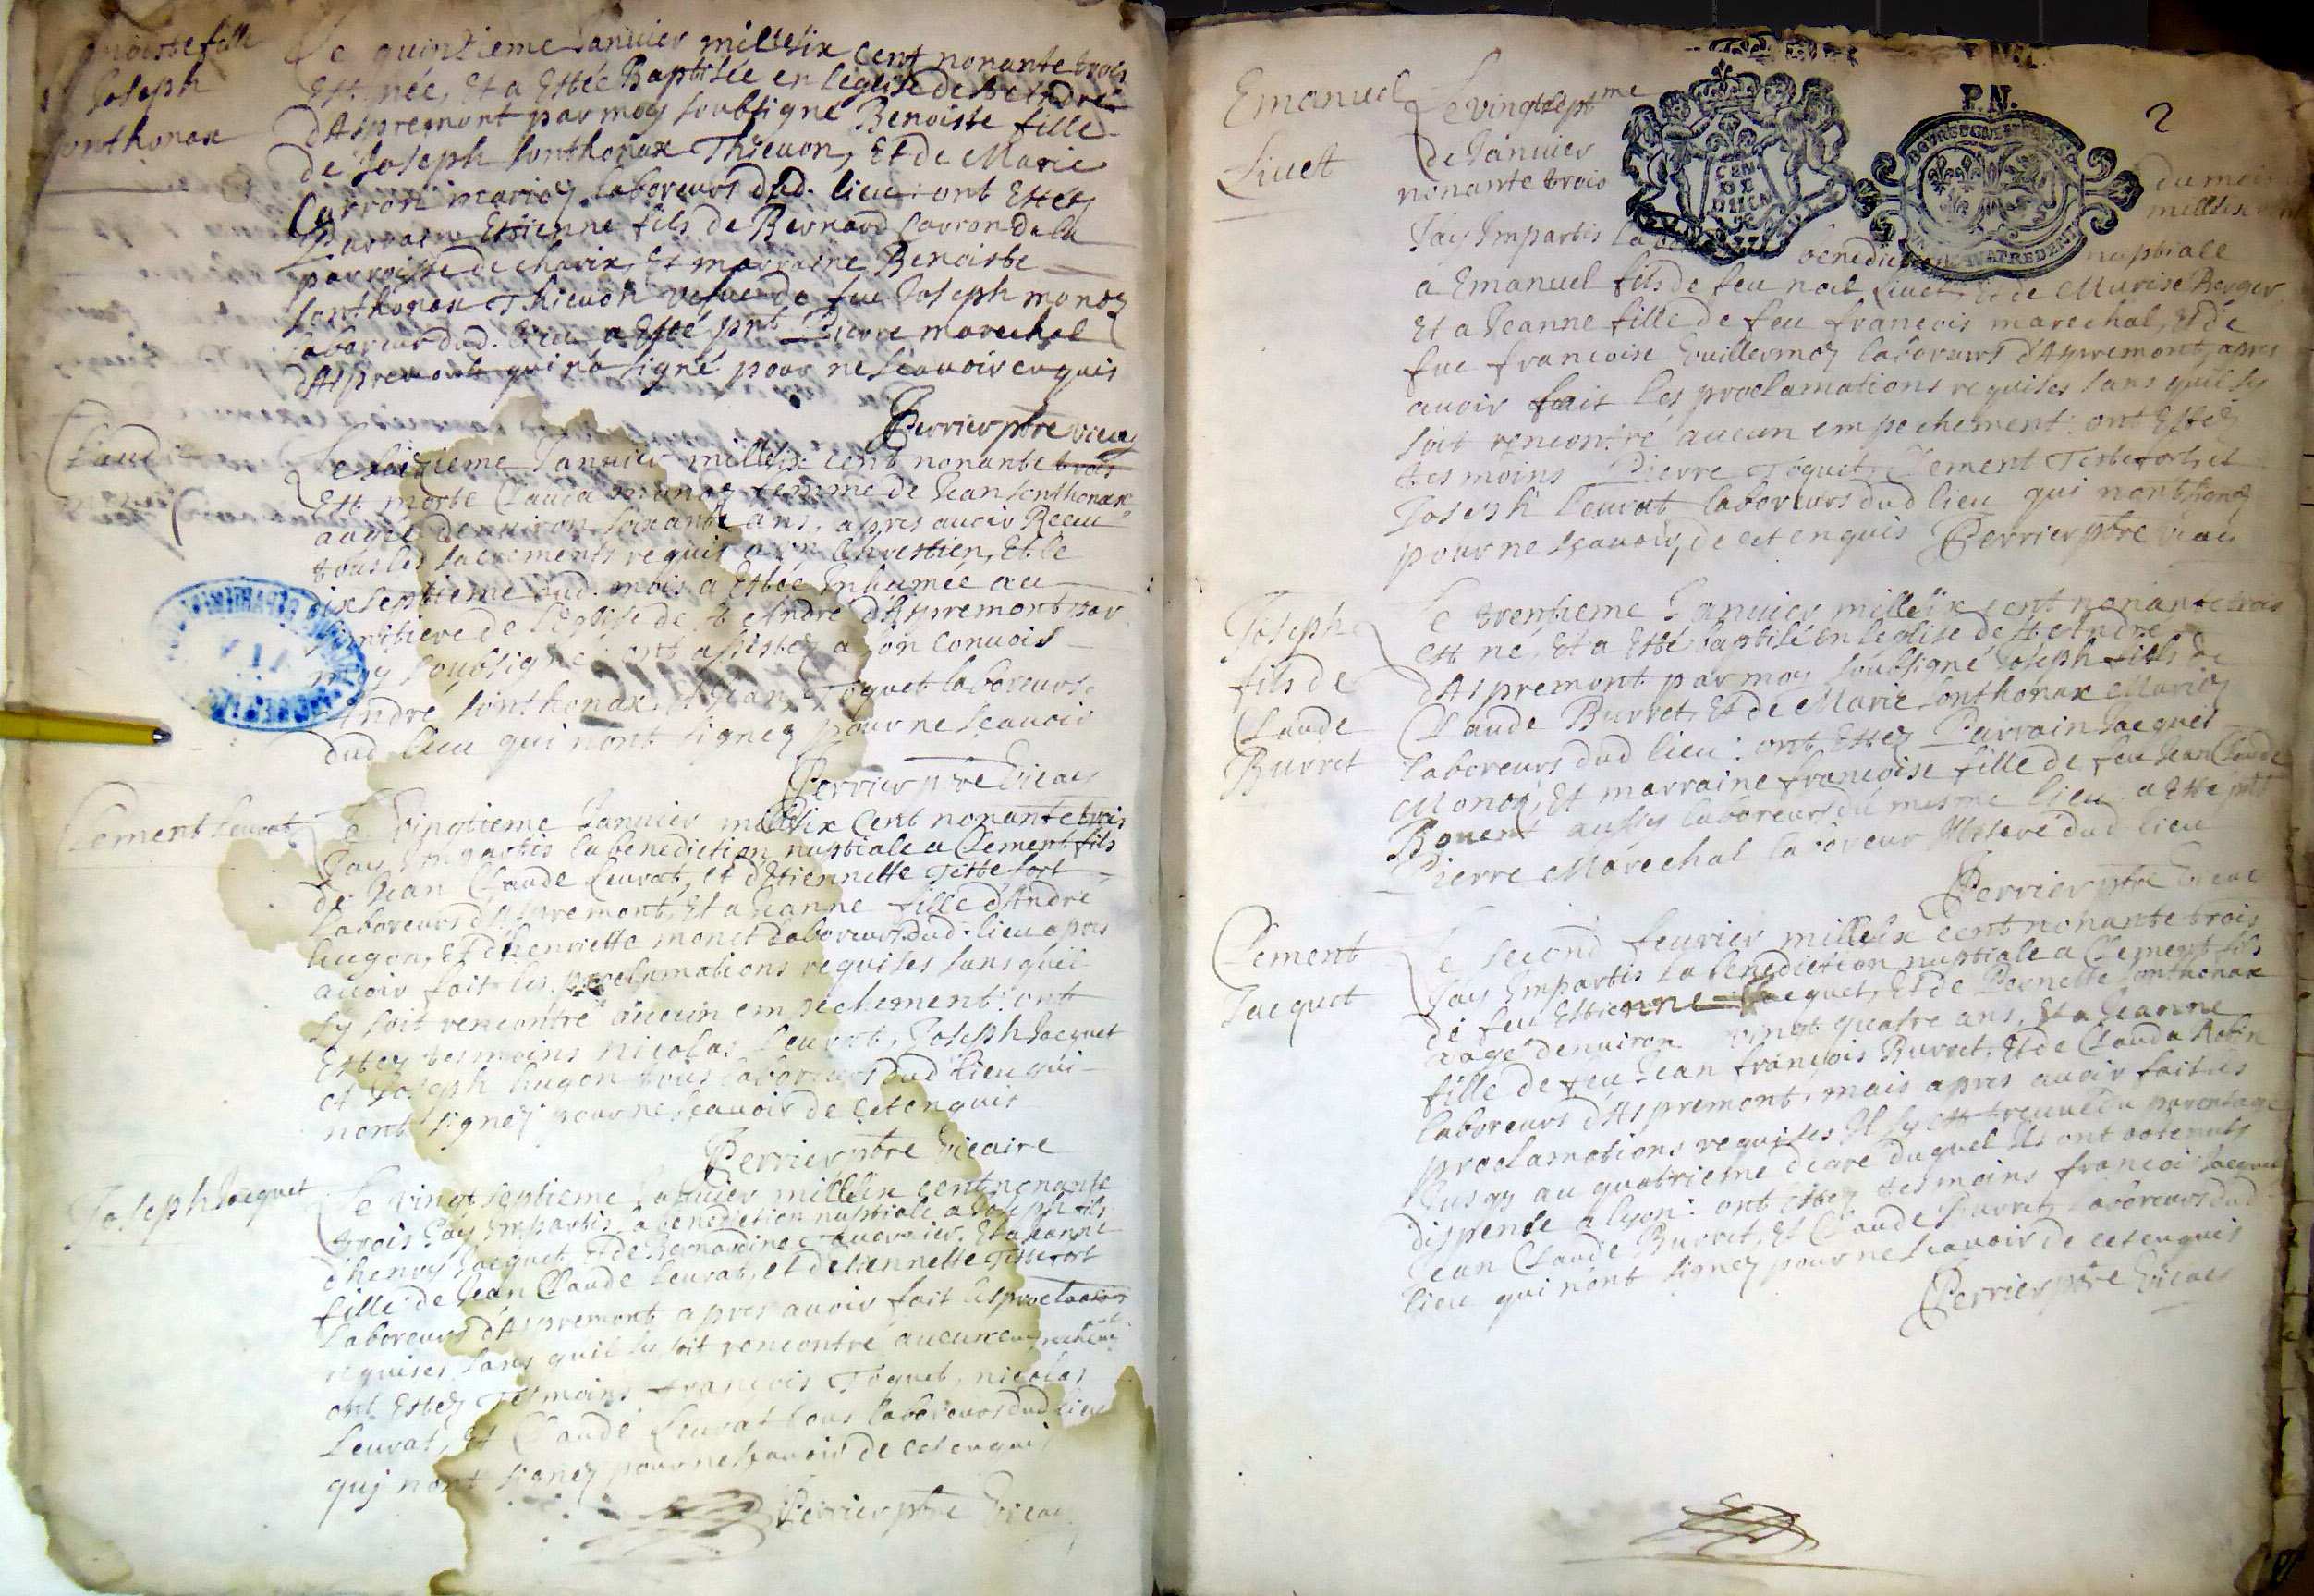 Benoiste fille
Joseph
Sonthonax
Le quinzieme Januier mille six cent nonante trois
Est née, Et a Estée Baptisée en leglise de St Andre
d'Aspremont par moy soubsigné Benoiste fille
de Joseph Sonthonax Thieuon, Et de Marie
Carron mariez laboreurs dud. lieu: ont Estez
Parrain Estienne fils de Bernard Carron de la
parroisse de charix, Et marraine Benoiste
Sonthonax Thieuon vefue de feu Joseph monoz
laboreur dud. lieu a Esté pnt Pierre marechal
d'Aspremont qui n'a signé pour ne scauoir enquis
Perrier ptre vicaz
Clauda
monoz
Le seizieme Januier mille six cent nonante trois
Est morte Clauda monoz femme de Jean Sonthonax
aagée denuiron soixante ans, apres auoir Receu
tous les sacrements requis a un Chrestien, Et le
dixseptieme dud. mois a Estée Inhumée au
simitiere de l'eglise de St Andre d'Aspremont par
moy soubsigné: ont assistez a son conuois
Andre Sonthonax, et Jean Toquet laboreurs
dud lieu qui nont signez pour ne scauoir
Perrier ptre vicaz
Clement Leurat
Le vingtieme Januier mille six Cent nonante trois
J'ay Impartis la benediction nuptiale a Clement fils
de Jean Claude Leurat, et d'Etiennette Testefort
Laboreurs d'Aspremont, Et a Jeanne fille d'Andre
hugon, Et d'henriette monet laboreurs dud. lieu apres
auoir fait les proclamations requises sans quil
sy soit rencontré aucun empechement: ont
Estez tesmoins nicolas Leurat, Joseph Jacquet
et Joseph hugon tous laboreurs dud lieu qui
nont signez pour ne scauoir de cet enquis
Perrier ptre vicaire
Joseph Jacquet
Le vingt septieme Januier mille six cent nonante
trois J'ay Impartis la benediction nuptiale a Joseph fils
d'henry Jacquet, Et de Bernardine Et a Jeanne
fille de Jean Claude Leurat, et d'etiennette Testefort
Laboreurs d'Aspremont apres auoir fait les proclamations
requises sans quil sy soit rencontré aucun empechement
ont Estez Tesmoins françois Toquet, nicolas
Leurat, Et Claude Leurat tous laboreurs dud lieu
quj nont signez pour ne scauoir de cet enquis
Perrier ptre vicaz
P.N.
2
Emanuel
Liuet
Le vingtsept me
de Januier du mois
nonante trois mille six cent
J'ay Impartis la benediction nuptiale
a Emanuel fils de feu noel Liuet, Et de Murise Berger
Et a Jeanne fille de feu françois marechal, Et de
fue francoise Guillermoz laboreurs d'Aspremont, apres
auoir fait les proclamations requises sans quil sy
soit rencontré aucun empechement: ont Estez
tesmoins Pierre Toquet, Clement Testefort, et
Joseph Leurat laboreurs dud lieu qui nont signez
pour ne scauoir, de cet enquis Perrier ptre vicaz
Joseph
fils de
Claude
Burret
Le trentieme Januier mille six cent nonante trois
est né, Et a Esté baptisé en l'eglise de St Andre
d'Aspremont par moy soubsigné Joseph fils de
Claude Burret, Et de Marie Sonthonax Mariez
laboreurs dud lieu: ont Estez Parrain Jacques
Monoz, Et marraine francoise fille de feu Jean Claude
aussy laboreurs du mesme lieu a esté pnt
Pierre Marechal laboreur dud lieu
Perrier ptre vicaz
Clement
Jacquet
Le second feurier mille six cent nonante trois
J'ay Impartis la benediction nuptiale a Clement fils
de feu Estienne Jacquet, Et de Pernette Sonthonax
aagé denuiron vingt quatre ans, Et a Jeanne
fille de feu Jean françois Burret, Et de Clauda Robin
laboreurs d'Aspremont, mais apres auoir fait les
proclamations requises Il sy est treuué du parentage
Jusqs au quatrieme degre duquel Ils ont obtenuts
dispense a lyon: ont estez tesmoins françois Jacquet
Jean Claude Burret, Et Claude Burret, laboreurs dud
lieu qui nont signez pour ne scauoir de cet enquis
Perrier ptre vicaz